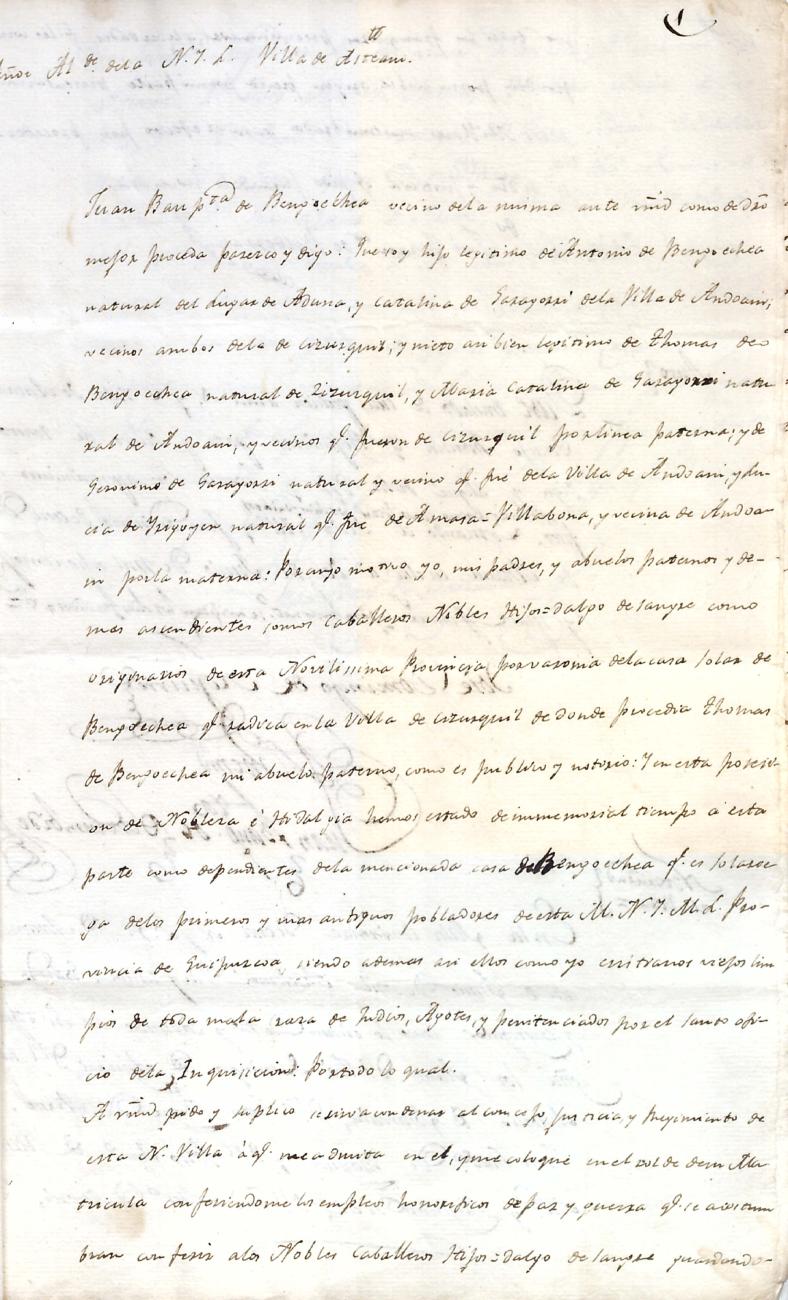 1
Alde. dela N. Y. L. Villa de Asteasu.
Juan Baupta. de Bengoechea vecino dela misma ante vmd como de dro
mejor proceda parezco y digo: Que soy hijo legitimo de Antonio de Bengoechea
natural del Lugar de Aduna, y Catalina de Garayorri dela Villa de Andoain;
vecinos ambos dela de Cizurquil; y nieto asi bien legitimo de Thomas de
Bengoechea natural de Zizurquil, y Maria Catalina de Garayorri natu
ral de Andoain, y vecinos q.e fueron de Cizurquil por linea paterna; y de
Geronimo de Garayorri natural y vecino q.e fué dela Villa de Andoain, y Lu-
cia de Yrigoyen natural q.e fue de Amasa=Villabona, y vecina de Andoa-
in por la materna: Por cuyo motivo yo, mis padres, y abuelos paternos y de-
mas ascendientes somos Caballeros Nobles Hijos=dalgo de sangre como
originarios de esta Novilissima Provincia por varonia dela casa solar de
Bengoechea q.e radica en la Villa de Cizurquil de donde procedia Thomas
de Bengoechea mi abuelo paterno, como es publico y notorio: Y en esta posesi-
on de Nobleza é Hidalguia hemos estado de immemorial tiempo a esta
parte como dependientes dela mencionada casa de Bengoechea q.e es solarie
ga delos primeros y mas antiguos pobladores de esta M. N. Y. M. L. Pro-
vincia de Guipuzcoa, siendo ademas asi ellos como yo cristianos viejos lim
pios de toda mala raza de Judios, Agotes, y penitenciados por el santo ofi-
cio dela Inquisicion: Por todo lo qual.
A vmd pido y suplico se sirva condenar al concejo, justicia, y Regimiento de
esta N. Villa á q.e me admita en el, y me coloque en el rol de su Ma
tricula confiriendome los empleos honorificos de paz y guerra q.e se acostum
bran conferir alos Nobles Caballeros Hijos=dalgo de sangre guardando-